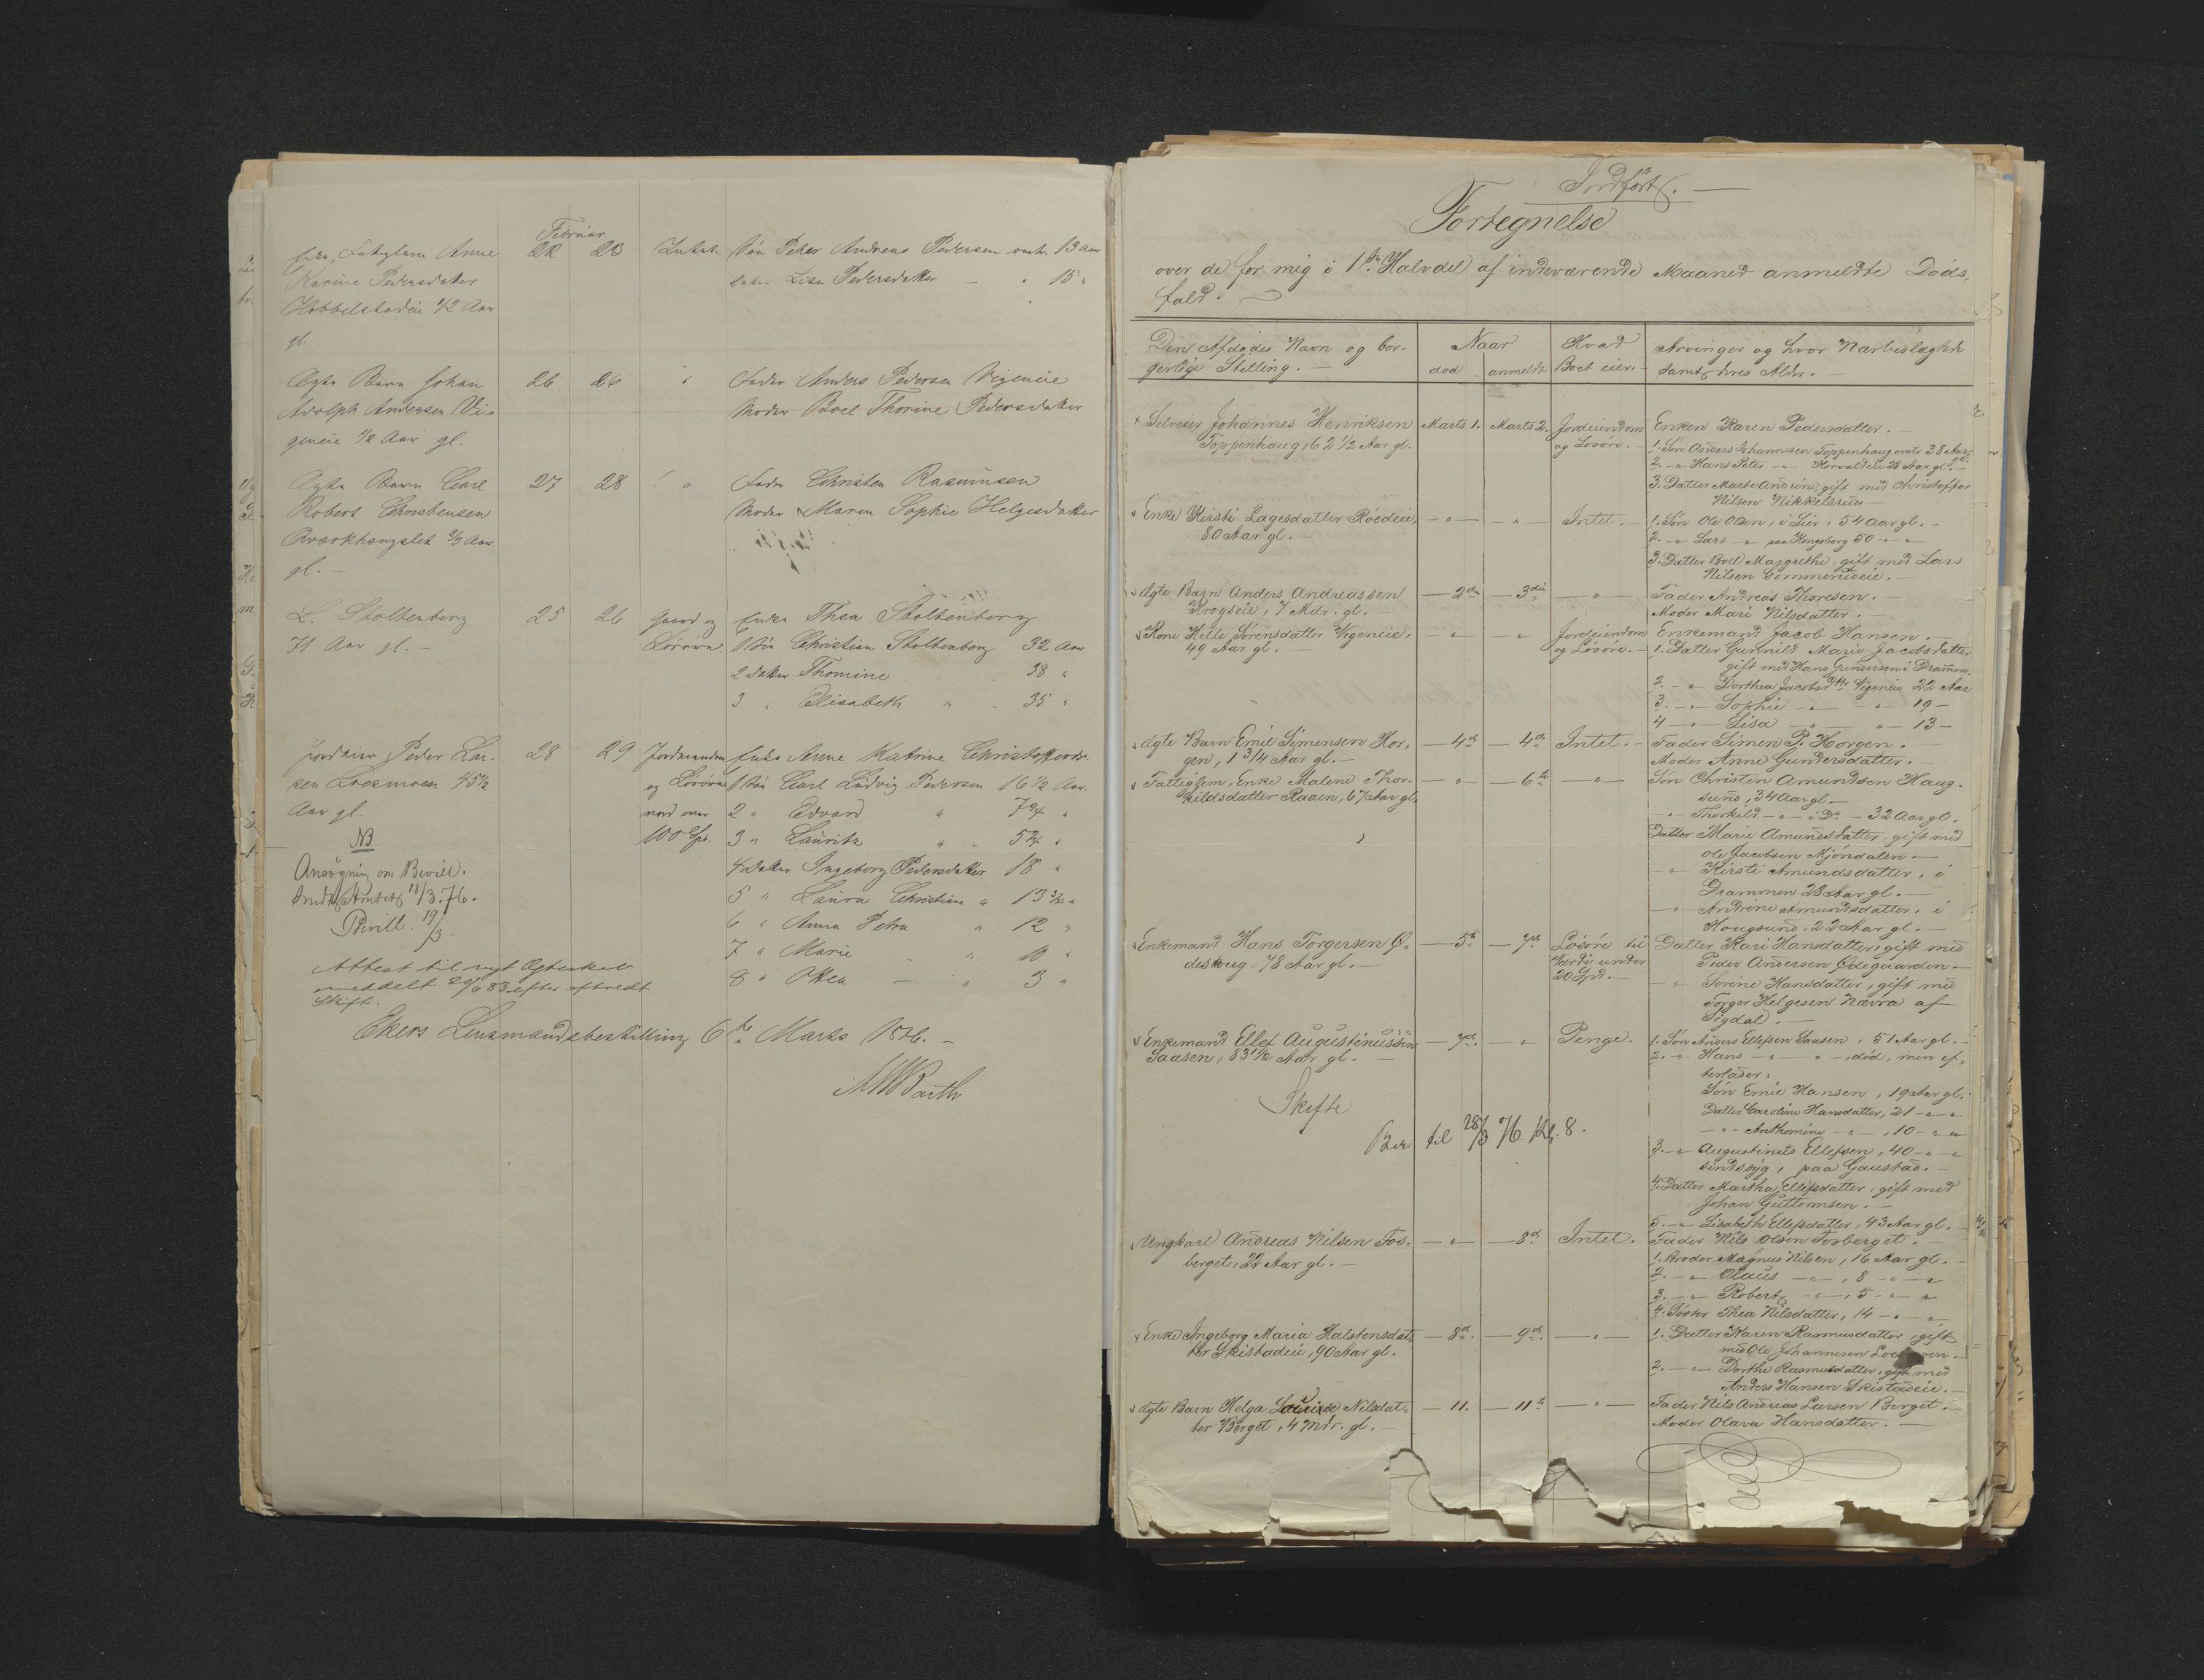 Februar
Enke, Fatiglem Anne 22 23 Intet. Søn Peter Andreas Pedersen omtr. 13 Aar
Karine Pedersdatter Datter Lise Pedersdatter — " 15 "
Hobbelstadeie 42 Aar
gl.
Ægte Barn Johan 26 26 " Fader Anders Pedersen Vigeneie
Adolph Andersen Vi-
Moder Boel Thorine Pedersdatter
geneie 1/2 Aar gl.
Ægte Barn Carl 27 28 " Fader Christen Rasmussen
Robert Christensen Moder Maren Sophie Helgesdatter
2/3 Aar
gl. —
L. Stoltenberg 25 26 Gaard og Enke Thea Stoltenberg
71 Aar gl. — Lösöre 1 Søn Christian Stoltenberg 32 Aar
2 Datter Thomine 38 "
3 " Elisabeth " 35 "
Jordeier Peder Lar- 28 29 Jordeiendom Enke Anne Katrine Christoffersdr.
sen Loesmoen 45 1/2 og Lösöre 1 Søn Carl Ludvig Pedersen 16 1/2 Aar.
Aar gl. 2 " Edvard " "
100 Spd. 3 " Lauritz " "
NB
4 Datter Ingeborg Pedersdatter 18 "
Ansøgning om Bevill.
5 " Laura Christine "
Amtet 18/3.76.
6 " Anna Petra " 12 "
Bevill. 19/3.
7 " Marie " "
Attest til nyt Ægteskab
8 " Othea — " 3 "
meddelt 20/6 83 efter afholdt
Skifte.
Ekers Lensmandsbestilling 6te Marts 1876. —
Indført. —
Fortegnelse
over de for mig i 1ste Halvdel af indeværende Maaned anmeldte Döds-
fald. —
Den Afdødes Navn og bor- Naar Hvad Arvinger og hvor Nærbeslægtede
gerlige Stilling. — död anmeldt Boet eier. — samt deres Alder. —
Selveier Johannes Henriksen Marts 1. Marts 2. Jordeiendom Enken Karen Pedersdatter. —
Toppenhaug, 62 1/2 Aar gl. og Lösöre. — 1. Søn Anders Johannesen Toppenhaug 38 Aar gl.
2. " Hans Peter — " 28 Aar gl. —
3. Datter Marte Andrine, gift med Christoffer
Nilsen Mikkelsrud
Enke Kirsti Lagesdatter Röedeie, — " — " Intet. — 1. Søn Ole Olsen, i Lier, 54 Aar gl. —
80 Aar gl. — 2. " Lars — " paa Kongsberg 50 — " —
3. Datter Boel Margrethe, gift med Lars
Nilsen
Ægte Barn Anders Andreassen — 2den — 3die — " — Fader Andreas Thoresen. —
Krogseie, 7 Mdr. gl. — Moder Mari Nilsdatter. —
Kone Helle Sörensdatter Vigeneie, — " — " Jordeiendom Enkemand Jacob Hansen. —
49 Aar gl. — og Lösöre. — 1. Datter Gunnild Marie Jacobsdatter
gift med Hans Gundersen i Drammen.
2. — " Dorthea Jacobsdtr Vigeneie 22 Aar
3. — " Sophie — " — " 19 —
4 — " Lisa — " — " 13 —
Ægte Barn Emil Simensen Hor- — 4de — 4de Intet. — Fader Simen P. Horgen. —
gen, 1 3/4 Aar gl. — Moder Anne Gundersdatter. —
Fattiglem, Enke Malene Thor- — " — 6te — " — Søn Christen Amundsen Haug-
kildsdatter Raaen, 67 Aar gl. sund, 34 Aar gl. —
— " Thorkild — " — i Do — 32 Aar gl.
Datter Marie Amundsdatter, gift med
Ole Jacobsen Mjöndalen —
— " Kirsti Amundsdatter, i
Drammen 28 Aar gl. —
— " Andrine Amundsdatter, i
Hougsund, 22 Aar gl. —
Enkemand Hans Torgersen Ö- — 5te — 7de Lösöre til Datter Kari Hansdatter, gift med
deshoug, 78 Aar gl. — Værdi under Peder Andersen Ödegaarden —
20 Spd. — — " Sörine Hansdatter, gift med
Torger Helgesen Nævra af
Sigdal. —
Enkemand Ellef Augustinussen — 7de — " Penge. 1. Søn Anders Ellefsen Saasen, 51 Aar gl. —
Saasen, 83 1/2 Aar gl. — 2. " Hans — " — " —, död, men ef-
terlader:
Skifte
Søn Emil Hansen, 19 Aar gl.
Datter Caroline Hansdatter, 21 — " "
Ber til 28/3 76 Kl. 8.
— " — Anthomine — " —, 10 — " "
3. — " Augustinus Ellefsen, 40 — " — "
sindssyg, paa Gaustad. —
4. Datter Martha Ellefsdatter, gift med
Johan Guttormsen. —
5. — " Lisabeth Ellefsdatter, 43 Aar gl. —
Ungkarl Andreas Nilsen Fos- — " — 8de Intet. Fader Nils Olsen Fosberget. —
berget, 22 Aar gl. — 1. Broder Magnus Nilsen, 16 Aar gl. —
2. — " Olaus — " —, 8 — " — "
3. — " Robert — " —, 5 — " — "
4. Söster Thea Nilsdatter, 14 — " — "
Enke Ingeborg Maria Halstensdat- — 8de. — 9de. — " — 1. Datter Karen Rasmusdatter, gift
ter Skistadeie, 90 Aar gl. med Ole Johannesen
2. — " Dorthe Rasmusdatter, gift med
Anders Hansen Skistadeie. —
Ægte Barn Helga Louise Nilsdat- — 11. — 11te — " — Fader Nils Andreas Larsen Berget. —
ter Berget, 4 Mdr. gl. — Moder Olava Hansdatter. —